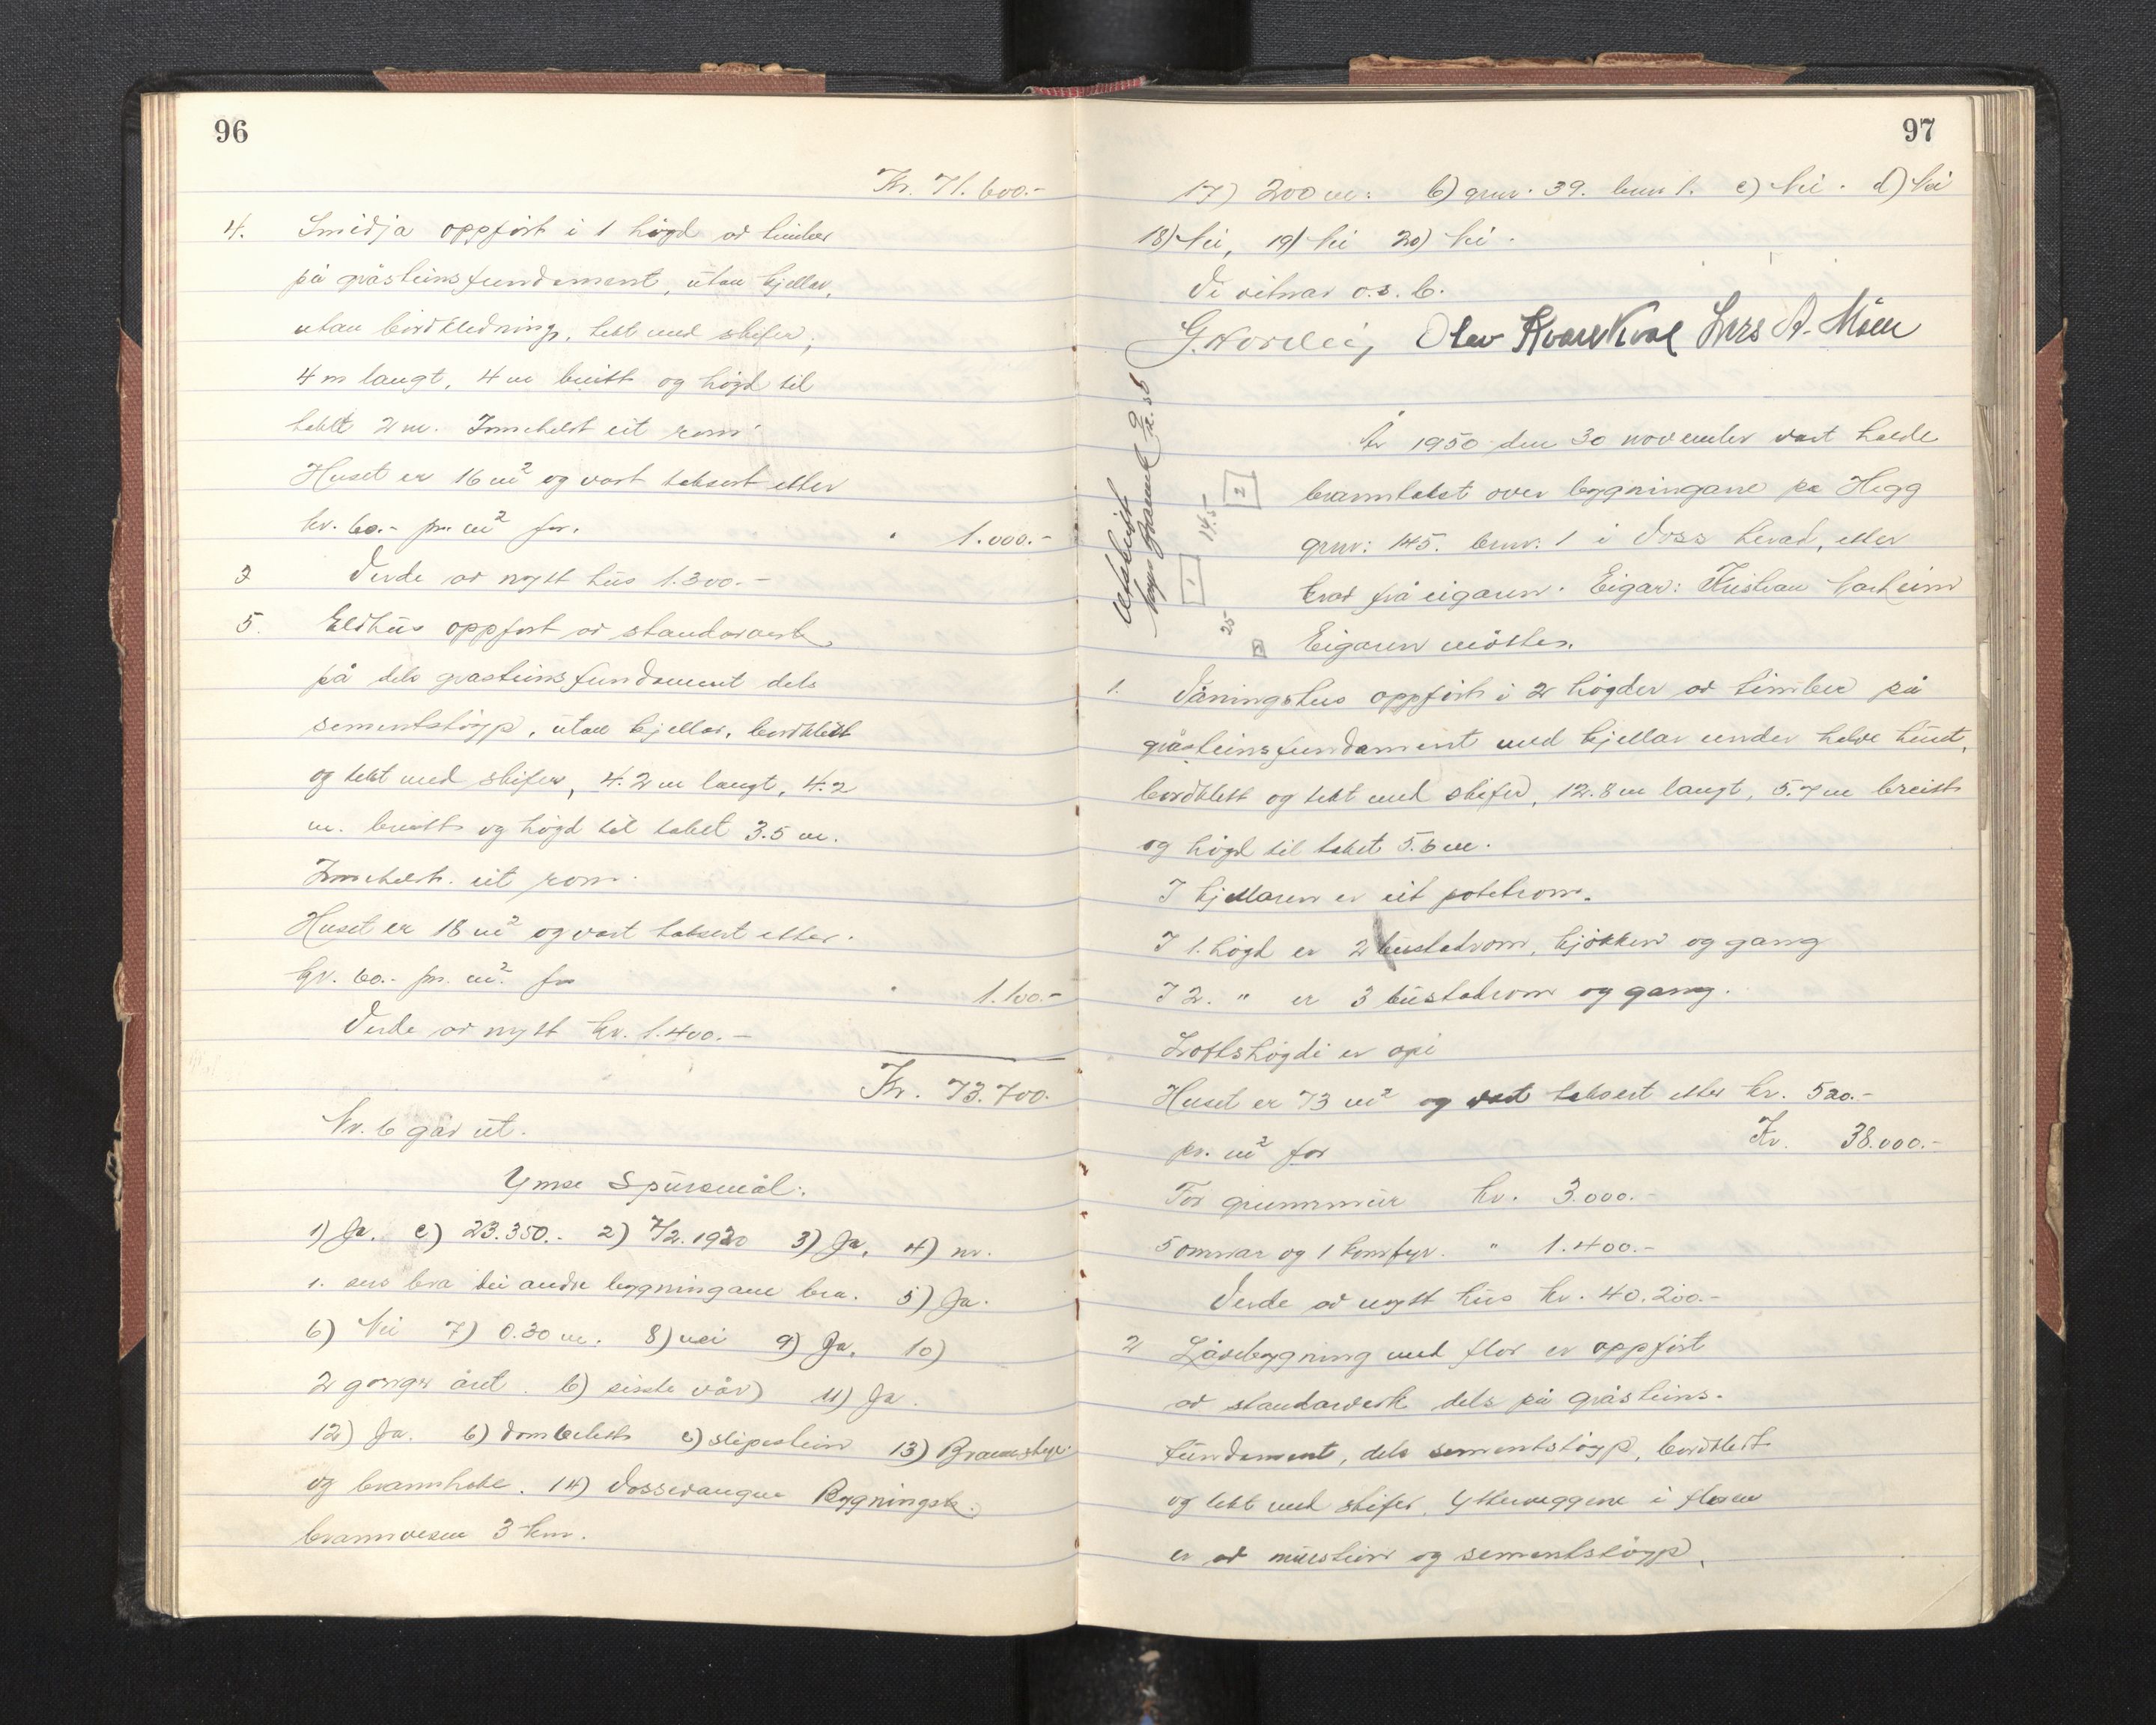 96
Kr. 71.600.-
4. Smidja oppført i 1 høgd av timber
på gråsteinsfundament, utan kjellar,
utan bordkledning, tekt med skifer,
4 m langt, 4 m breitt og høgd til
taket 2 m. Inneheld eit rom.
Huset er 16 m² og vart taksert etter
kr. 60.- pr. m² for. " 1.000.-
Verde av nytt hus 1.300.-
5. Eldhus oppført av standarverk
på dels gråsteinsfundament dels
sementstøyp, utan kjellar, bordkledt
og tekt med skifer, 4.2 m langt, 4.2
m. breitt og høgd til taket 3.5 m.
Inneheld. eit rom.
Huset er 18 m² og vart taksert etter.
kr. 60.- pr. m². for " 1.100.-
Verde av nytt kr. 1.400.-
Kr. 73.700.
Nr. 6 går ut.
Ymse Spursmål:
1) Ja. c) 23.350.- 2) 7/2.1920 3) Ja, 4) nr.
1. bra dei andre bygningane bra. 5) Ja.
6) Nei 7) 0.30 m. 8) nei 9) Ja, 10)
2 gonger året. b) siste vår) 11) Ja.
12) Ja. b) c) slipestein 13)
og brannhake. 14) Vossevangen Bygningsk.
brannvesen 3 km.
97
17) 200 m. b) gnr. 39. bnr 1. c) Nei. d) Nei
18) Nei, 19) Nei 20) Nei.
Vi vitnar o.s.b.
G. Olav Kvarekval Lars A. Møen
År 1950 den 30 november vart halde
branntakst over bygningane på Hegg
gnr: 145. bnr: 1 i Voss herad, etter
krav frå eigaren. Eigar: Kristian
Eigaren møtte.
2
14.5
1
25
3
1. Våningshus oppført i 2 høgder av timber på
gråsteinsfundament med kjellar under halve huset,
bordkledt og tekt med skifer, 12.8 m langt, 5.7 m breitt
og høgd til taket 5.6 m.
I kjellaren er eit potetrom.
I 1. høgd er 2 bustadrom, kjøkken og gang
I 2. " er 3 bustadrom og gang.
Loftshøgdi er opi
Huset er 73 m² og vart taksert etter kr. 520.-
pr. m² for Kr. 38.000.-
For grunnmur kr. 3.000.-
5 omnar og 1 komfyr. " 1.400.-
Verde av nytt hus kr. 40.200.-
2 Løebygning med flor er oppført
av standarverk dels på gråsteins-
fundament, dels sementstøyp, bordkledt
og tekt med skifer. Ytterveggene i floren
er av murstein og sementstøyp,